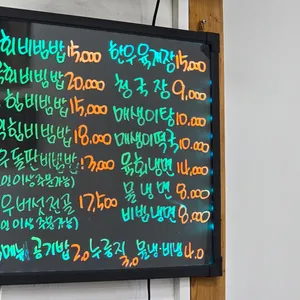 회비빔밥 15,000
육회비빔밥 20,000
회비빔밥 15,000
회비빔밥 18,000
우돌판비빔밥 13,000
인 이상 주문가능)
우버섯전골 17,500
인 이상 주문가능)
메뉴 공기밥 2.0 누룽지 3.0 물냉·비냉 4.0
한우육개장 15,000
청국장 9,000
매생이탕 10,000
매생이떡국 10,000
육회냉면 14,000
물냉면 8,000
비빔냉면 8,000